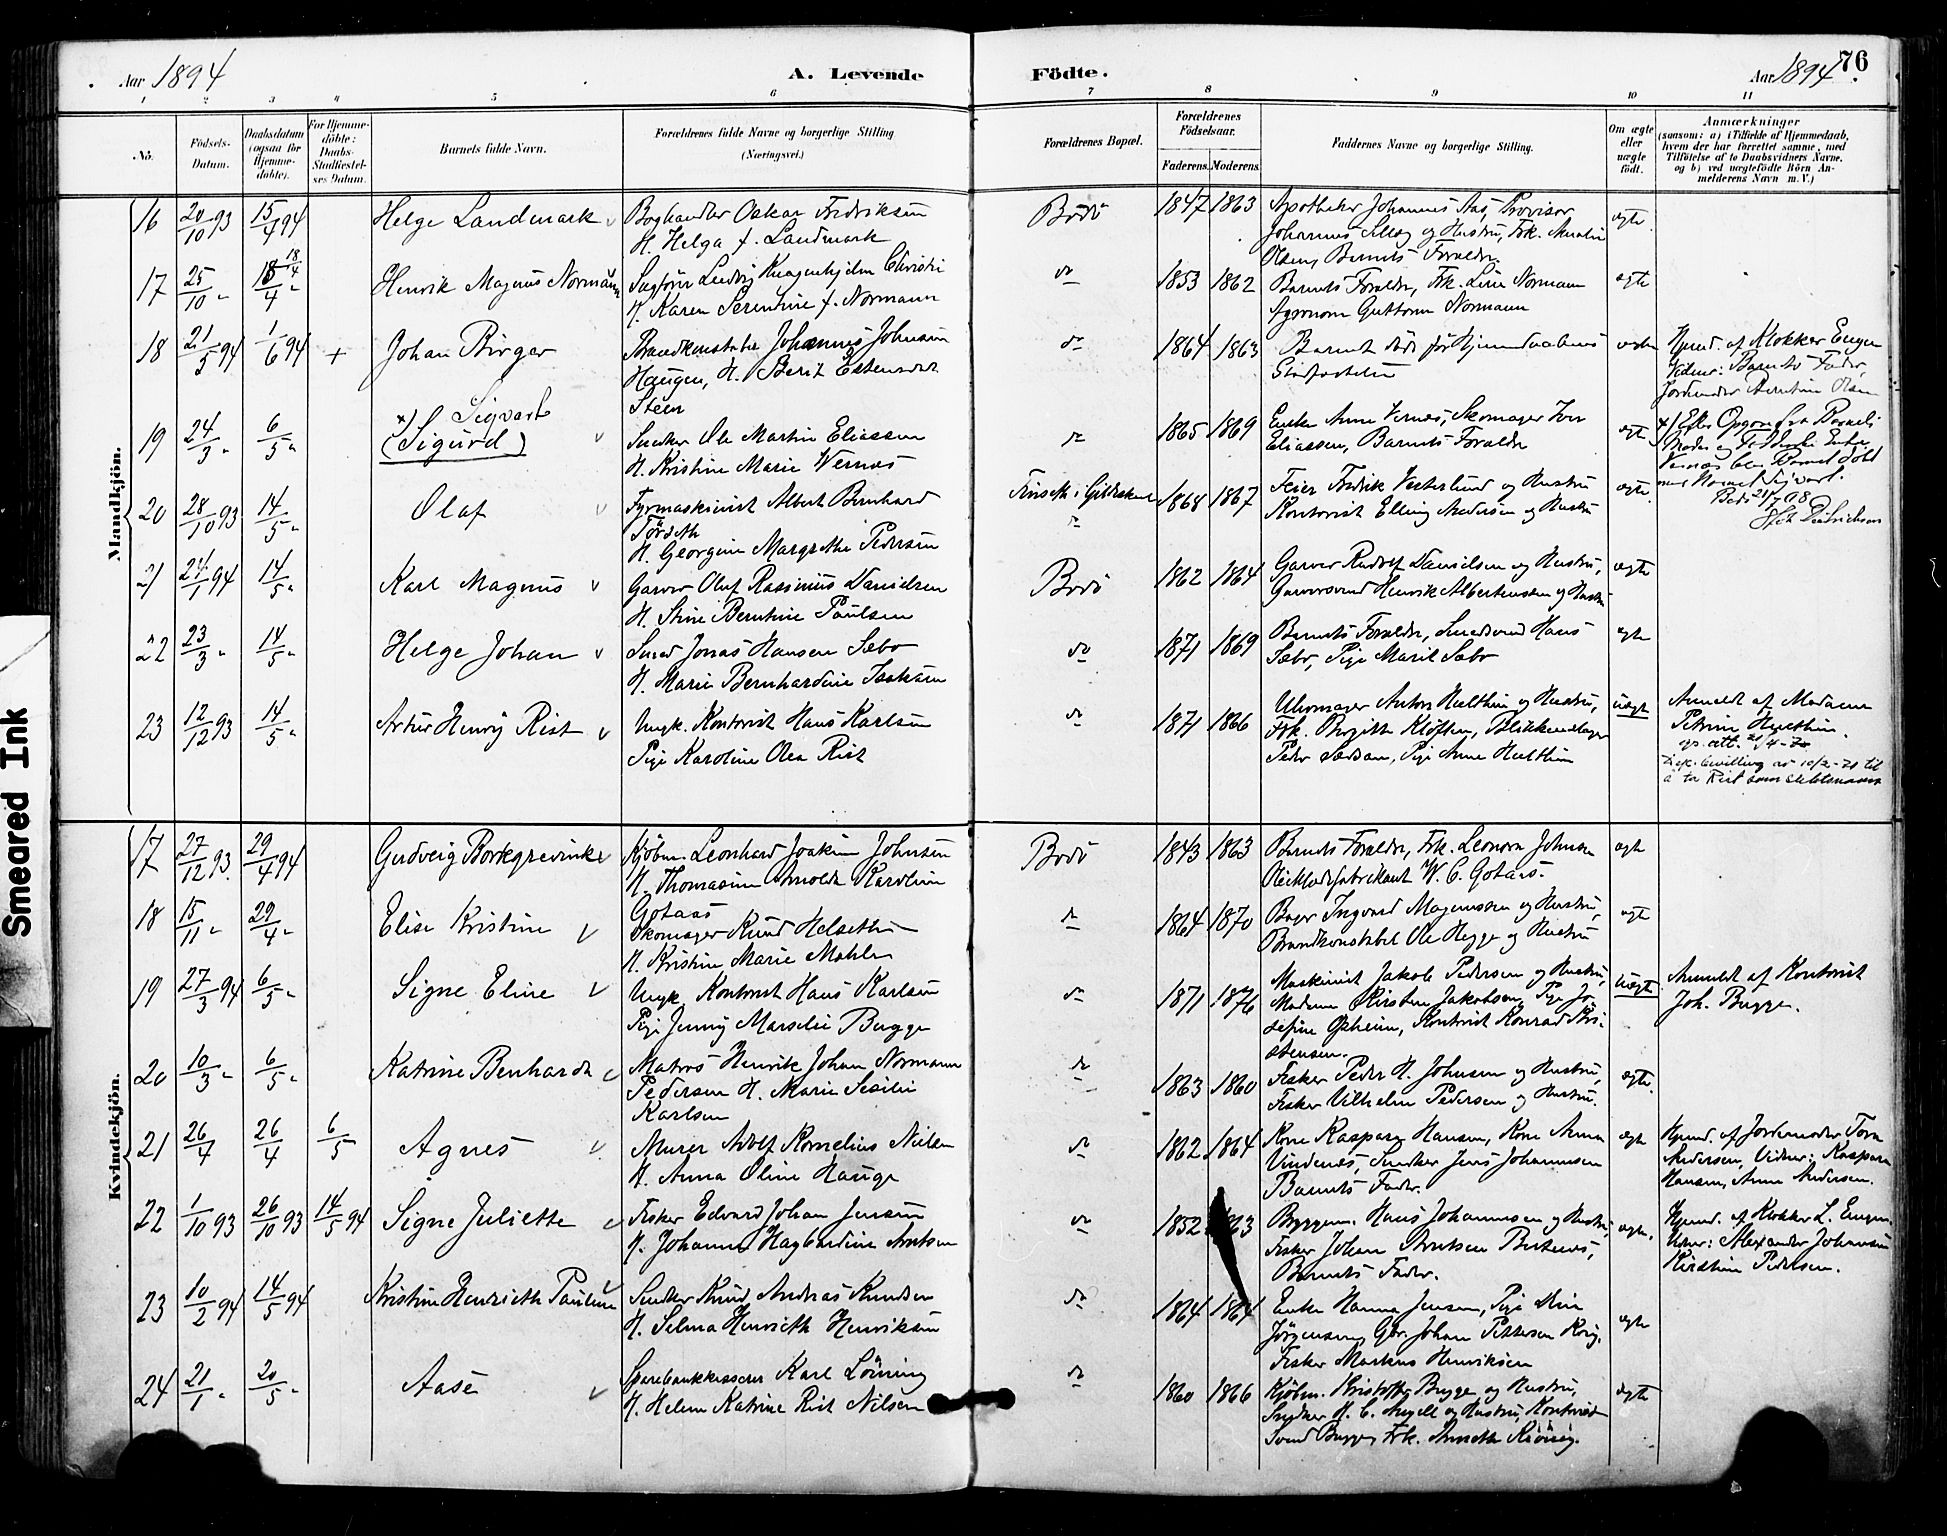 Aar 1894
A. Levende
Födte.
Aar 1894.
76
1 2 3 4 5 6 7 8 9 10 11
No.
Födsels-
Datum.
Daabsdatum
(ogsaa for
Hjemme-
döbte).
For Hjemme-
döbte:
Daabs-
Stadfæstel-
ses Datum.
Barnets fulde Navn.
Forældrenes fulde Navne og borgerlige Stilling
(Næringsvei.)
Forældrenes Bopæl.
Forældrenes
Födselsaar.
Faderens. Moderens.
Faddernes Navne og borgerlige Stilling.
Om ægte
eller
uægte
födt.
Anmærkninger
(saasom: a) i Tilfælde af Hjemmedaab,
hvem der har forrettet samme, med
Tilföielse af to Daabsvidners Navne,
og b) ved uægtefödte Börn An-
melderens Navn m. V.)
Mandkjön.
16 20/10 93 15/4 94 Helge Landmark
Boghandler Oskar Fredriksen
H. Helga f. Landmark
Bodö 1847 1863
Apotheker Johannes Aas, Provisor
Johannes og Hustru, Frk.
Olsen, Barnets Forældre.
ægte
17 25/10 " 18/4 "
18/4
Henrik Magnus Normann
Sagförer Ludvig Knagenhjelm Christi
H. Karen Serentine f. Normann
do 1853 1862
Barnets Forældre, Frk. Line Normann
Agronom Guttorm Normann
ægte
18 21/5 94 1/6 94 + Johan Birger
Brandkonstabel Johannes Johnsen
Haugen, H. Berit Estensdat
Steen
do 1864 1863
Barnet döde för Hjemmedaabens
Stadfæstelse
ægte
Hjemd. af Klokker Engen
Vidner: Barnets Fader,
Jordmoder Olsen
19 24/3 " 6/5 "
x) Sigvart
(Sigurd)
Snedker Ole Martin Eliassen
H. Kristine Marie Vernæs
do 1865 1869
Enke Anne Vernæs, Skomager Iver
Eliassen, Barnets Forældre
ægte
x/ Efter Opgave fra Barnets
Moder og Enke
Vernæs blev Barnet döbt
med Navnet Sigvart.
Bodö 21/7 98
Didrichsen
20 28/10 93 14/5 " Olaf
Fyrmaskinist Albert Bernhard
Törseth
H. Georgine Margrethe Pedersen
i Gildeskaal
do
1868 1867
Feier Fredrik Vesterlund og Hustru
Kontorist Elling Andersen og Hustru
ægte.
21 24/1 94 14/5 " Karl Magnus
Garver Oluf Rasmus Danielsen
H. Stine Berntine Paulsen
Bodö 1862 1864
Garver Rudolf Danielsen og Hustru,
Garversvend Henrik Albertensen og Hustru
ægte
22 23/3 " 14/5 " Helge Johan
Smed Jonas Hansen Sæbo
H. Marie Bernhardine Isaksen
do 1871 1869
Barnets Forældre, Smedsvend Hans
Sæbo, Pige Marit Sæbo
ægte
23 12/12 93 14/5 " Artur Henry Rist
Ungk. Kontorist Hans Karlsen
Pige Karoline Olea Rist
do 1871 1866
Uhrmager Anton Hulthin og Hustru,
Frk. Birgitte Klöften, Blikkenslager
Peder, Pige Anne Hulthin
uægte
Anmeldt af Madame
Petrine Hulthin.
op. att. 21/4-70
bevilling av 10/2-21 til
å ta Rist som slektsnavn
Kvindekjön.
17 27/12 93. 29/4 94 Gudveig Borkgrevink
Kjöbm. Leonhard Joakim Johnsen
H. Thomasine Arnolda Karoline
Gotaas
Bodö 1843 1863
Barnets Forældre, Frk. Leonora Johnsen
W. C. Gotaas.
ægte
18 15/11 " 29/4 " Elise Kristine
Skomager Knud Helseth
H. Kristine Marie Mohle
do 1864 1870
Bager Ingvard Magnussen og Hustru,
Brandkonstabel Ole Hegge og Hustru
ægte
19 27/3 94 6/5 " Signe Eline
Ungk. Kontorist Hans Karlsen
Pige Jenny Marselie Bugge
do 1871 1876
Maskinist Jakob Pedersen og Hustru,
Madame Kirsten Jakobsen, Pige Jo-
sefine Opheim, Kontorist Konrad Kri-
stensen.
uægte
Anmeldt af Kontorist
Joh. Bugge.
20 10/3 " 6/5 " Katrine Benharda
Matros Henrik Johan Normann
Pedersen H. Marie Sesilie
Karlsen
do 1863 1860
Fisker Peder H. Johnsen og Hustru,
Fisker Vilhelm Pedersen og Hustru.
ægte.
21 26/4 26/4 6/5 Agnes
Murer Adolf Kornelius Nilsen
H. Anna Oline Hauge
do 1862 1864
Kone Kaspara Hansen, Kone Anna
Vindenæs, Snedker Jens Johannesen
Barnets Fader.
ægte
Hjemd. af Jordmoder Tora
Andersen, Vidner: Kaspara
Hansen, Anne Andersen.
22 1/10 93 26/10 93 14/5 94 Signe Juliette
Fisker Edvard Johan Jensen
H. Johanna Hagbardine Arntsen
do 1852 1863
Byggm. Hans Johannesen og Hustru,
Fisker Johan Arntsen,
Barnets Fader.
ægte.
Hjemd. af Klokker L. Engen
Vidner: Alexander Johansen
Kirstine Pedersen.
23 10/2 94 14/5 94 Kristine Henriette Pauline
Snedker Knud Andreas Knudsen
H. Selma Henriette Henriksen
do 1864 1864
Enke Hanna Jensen, Pige
Jörgensen, Gbr. Johan Pettersen,
Fisker Markus Henriksen
ægte
24 21/1 " 20/5 " Aase
Sparebankkasserer Karl Löning
H. Helene Katrine Rist Nilsen
do 1860 1866
Kjöbm. Kristoffer Bugge og Hustru,
Snedker H. C. Angell og Hustru, Kontorist
Svend Bugge, Frk. Annette
ægte
Smeared Ink